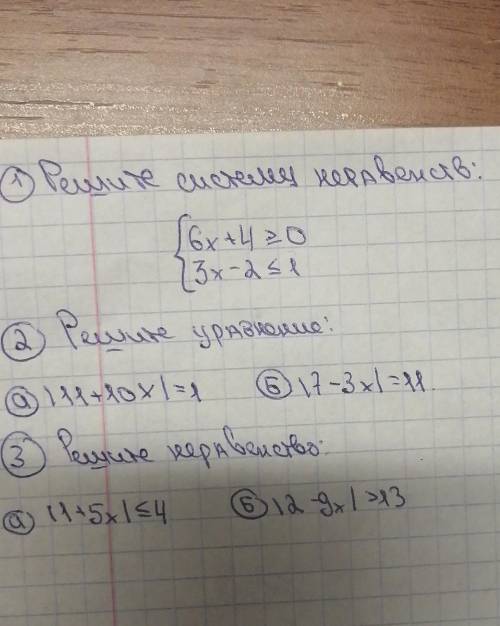 ① Решите систему неравенств:
{6x+4≥0
{3x-2≤1
② Решите уравнение:
ⓐ |11+10x|=1 Ⓑ |7-3x|=11.
③ Решите неравенство:
ⓐ |1+5x|≤4 Ⓑ |2-9x|>13